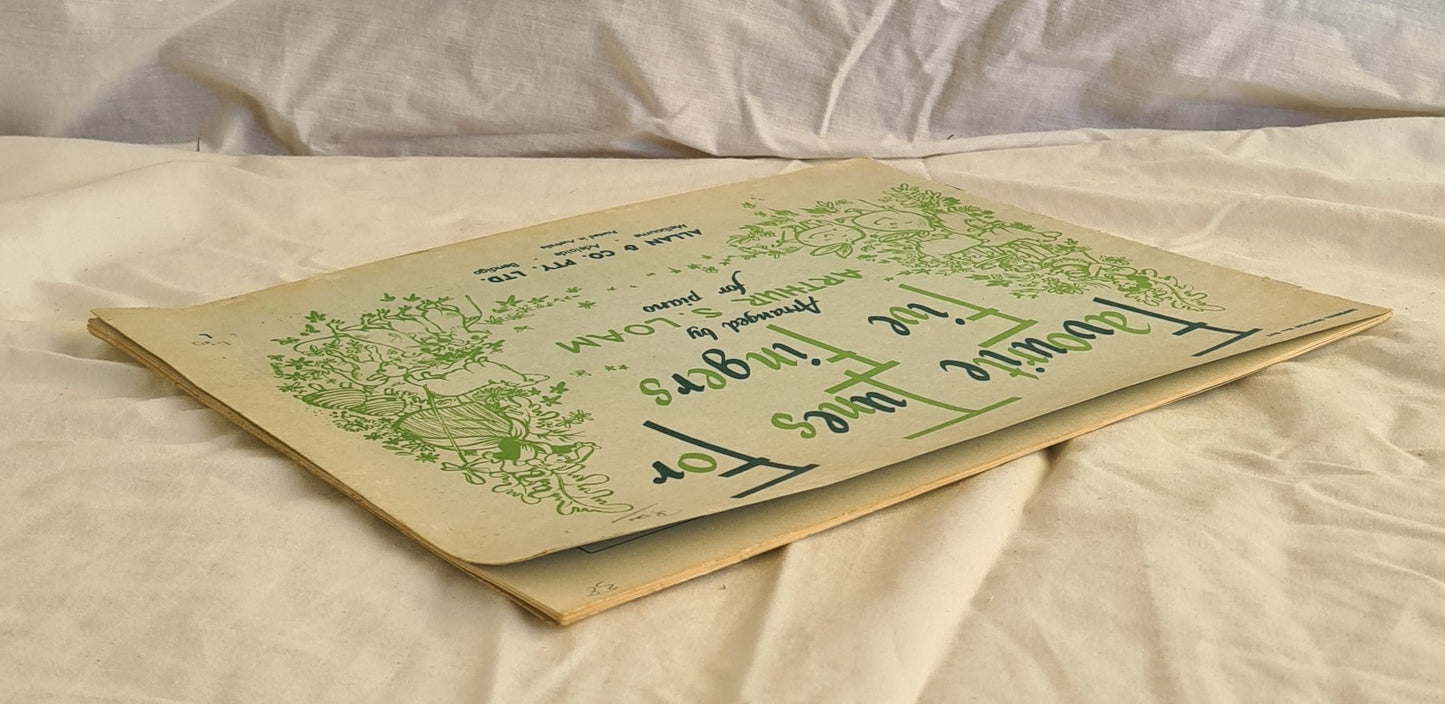 Favourite
Tunes For
Five
Fingers
Arranged by
ARTHUR S. LOAM
for piano
ALLAN & CO. PTY. LTD.
Melbourne Adelaide . Bendigo